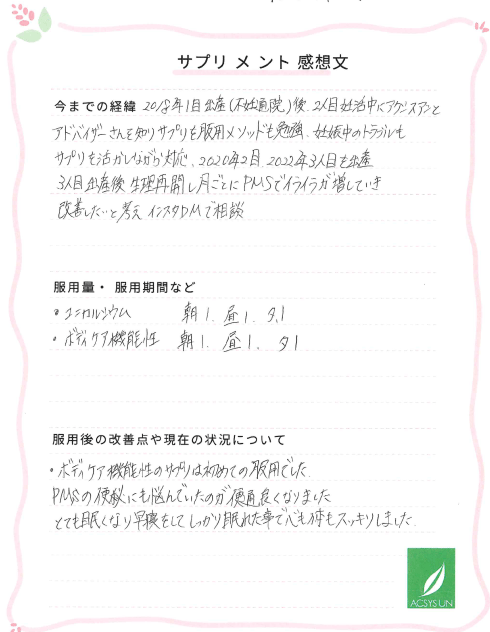 サプリメント感想文
今までの経緯 2018年1目出産(不妊通院)後、2人目妊活中にアクシスアンと
アドバイザーさんを知りサプリも服用メソッドも勉強、妊娠中のトラブルも
サプリを活かしながら対応、2020年2目、2022年3人目を出産
3人目出産後生理再開し月ごとにPMSでイライラが増していき
改善したいと考えインスタDMで相談
服用量・服用期間など
・ユニカルシウム 朝1. 昼1. 夕1
・ボディケア機能性 朝1. 昼1. 夕1
服用後の改善点や現在の状況について
・ボディケア機能性のサプリは初めての服用でした.
PMSの便秘にも悩んでいたのが便通良くなりました
とても眠くなり早寝をしてしっかり眠れた事で心も体もスッキリしました.
ACSYSUN